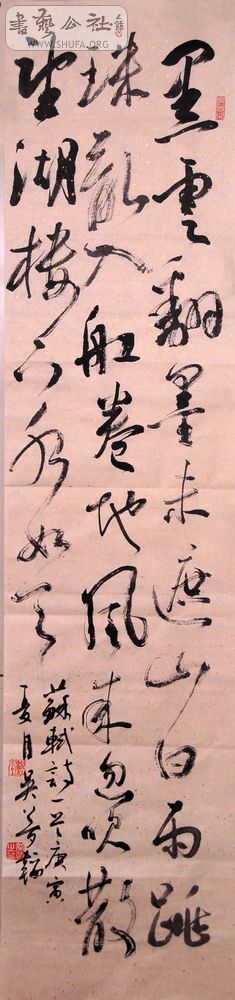 書藝公社
WWW.SHUFA.ORG
黑雲翻墨未遮山白雨跳
珠亂入船卷地風來忽吹散
望湖樓下水如天
蘇軾詩一首庚寅
夏月吳